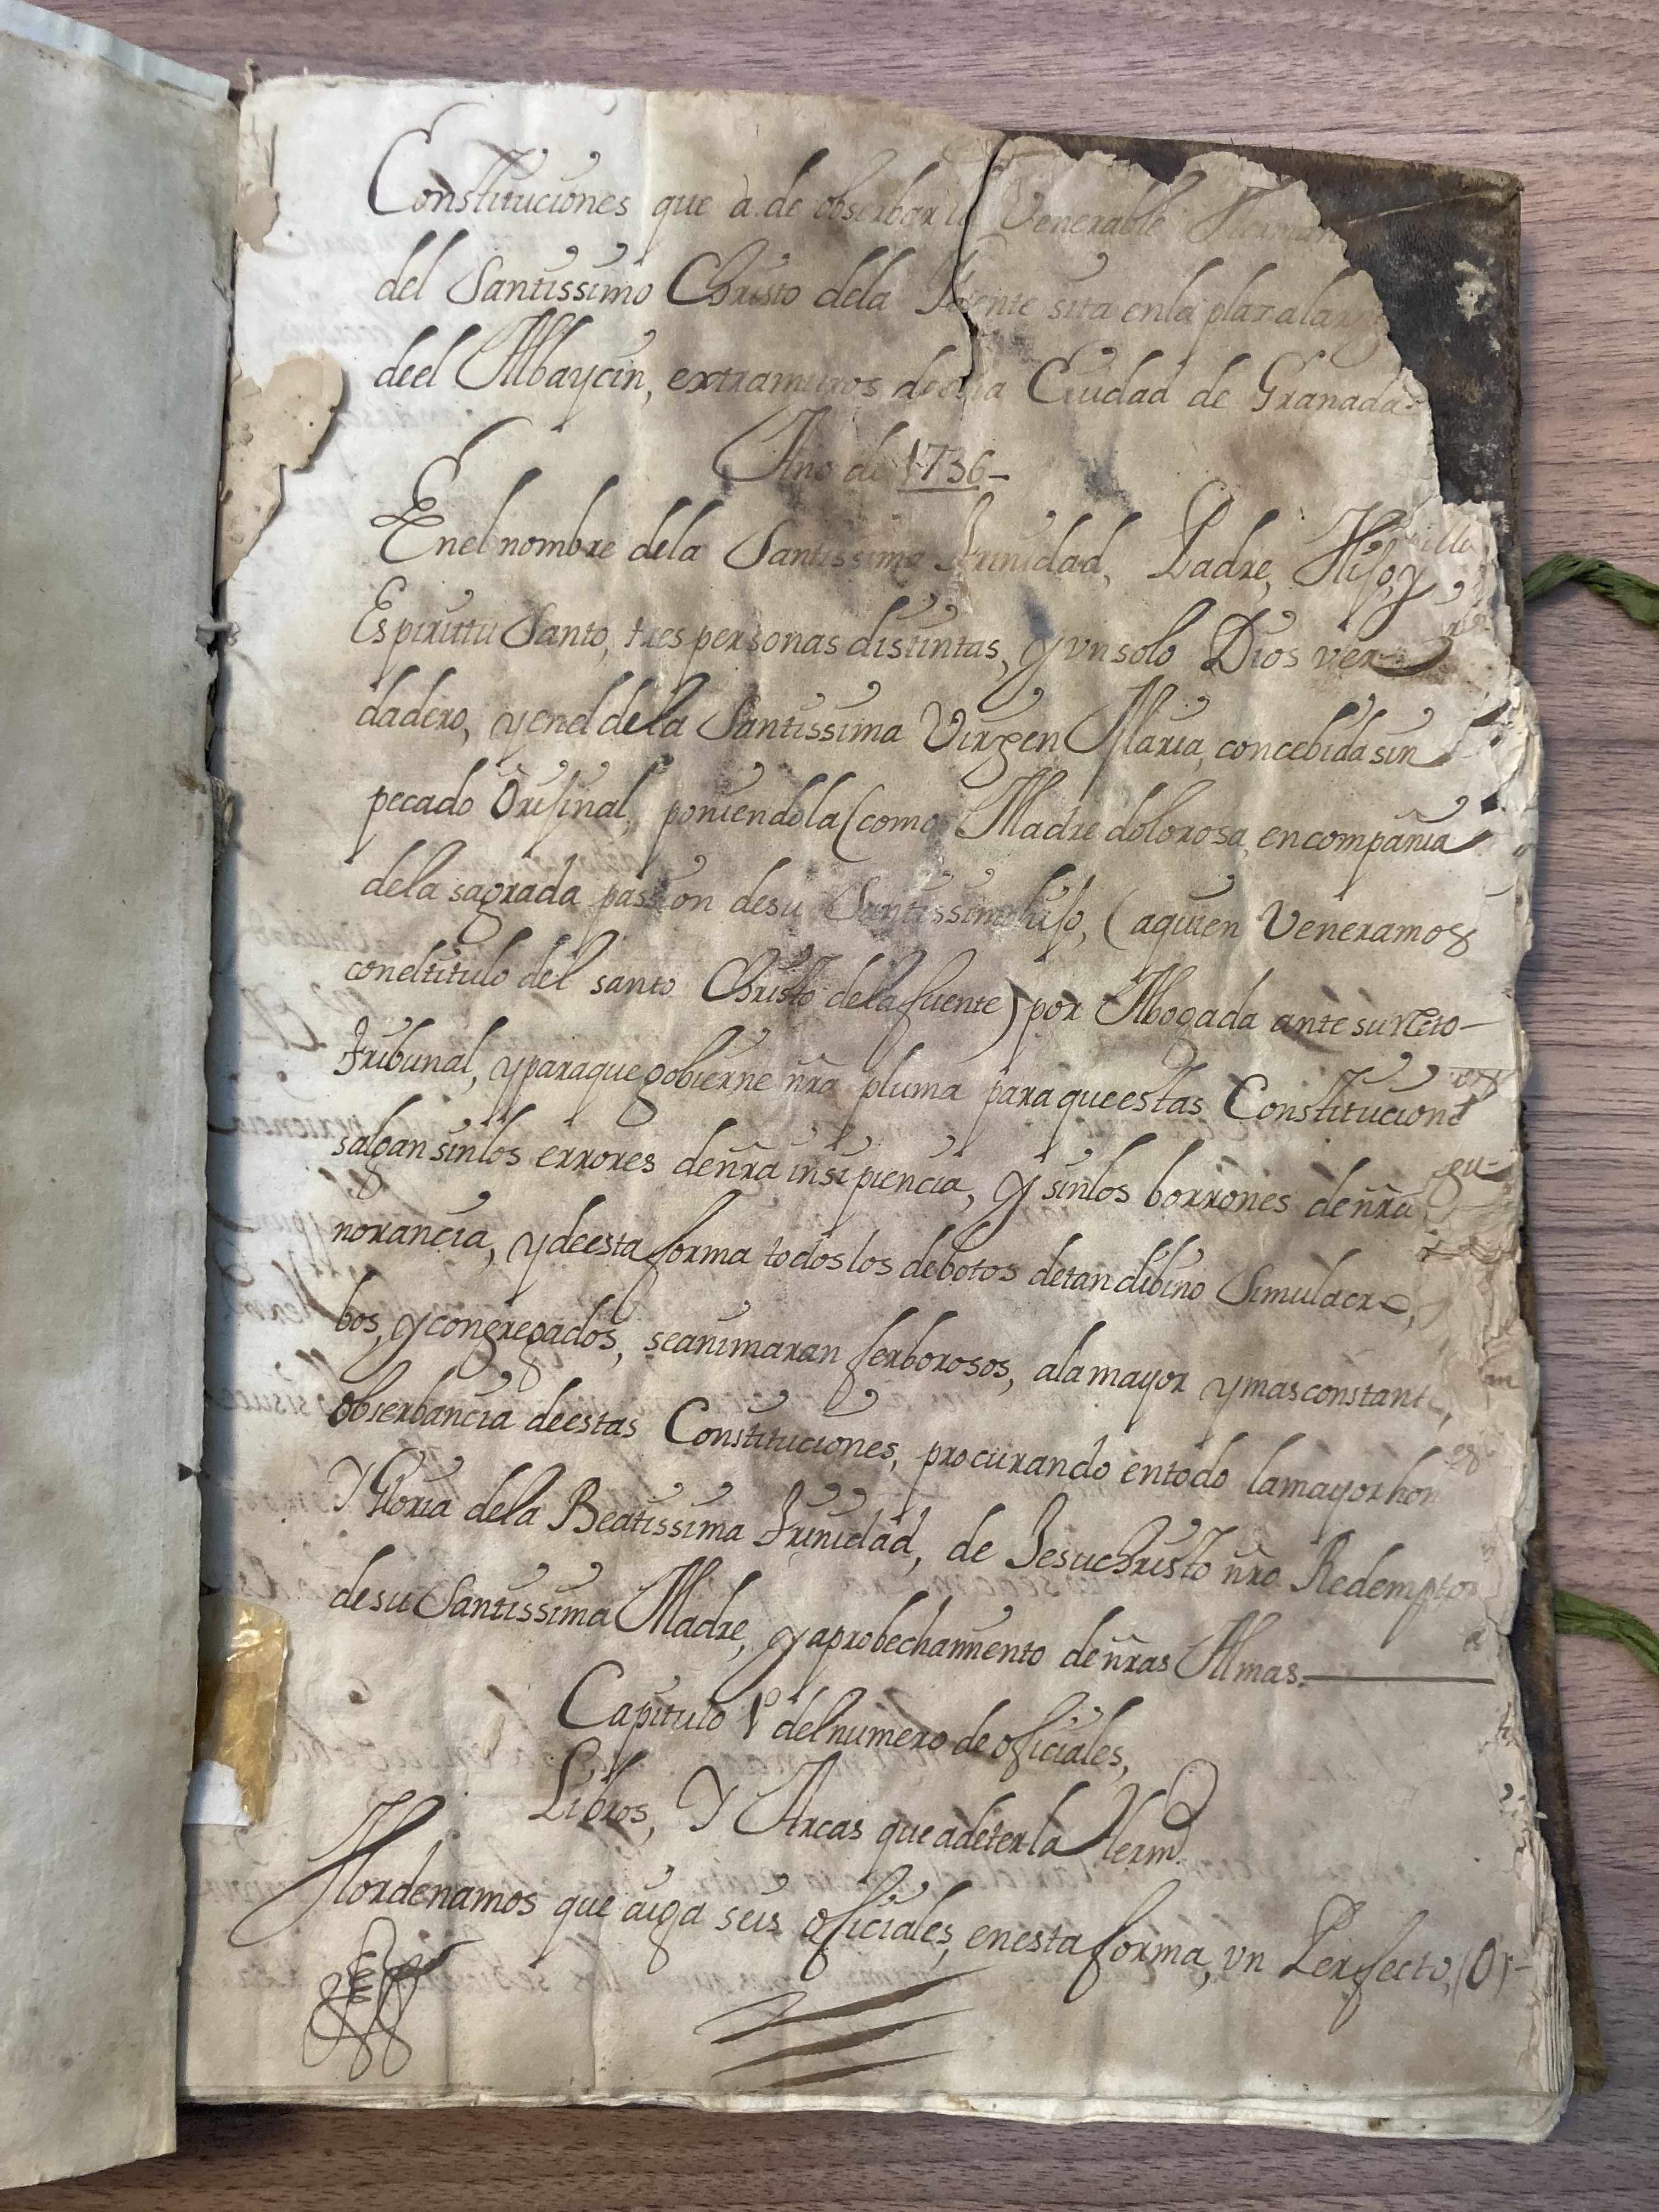 Constituciones que à de obserbar la Venerable Herman
del Santissimo Christo dela Fuente sita enla plaza larg
deel Albaycin, extramuros de esta Ciudad de Granada.
Año de 1736-
Enel nombre dela Santissima Trinidad, Padre, Hijo, y
Espirittu Santo, tres personas distintas, y vn solo Dios ver
dadero, y enel dela Santissima Virgen Maria, concebida sin
pecado Orijinal, poniendola (como Madre dolorosa, en compañia
dela sagrada passion desu Santissimo hijo, (aquien Veneramos
coneltitulo del santo Christo dela fuente) por Abogada ante su recto-
tribunal, y paraque gobierne ñra pluma para que estas Constitucione
salgan sinlos errores de ñra insipiencia, y sinlos borrones de ñra
norancia, y deesta forma todos los debotos detan dibino Simulacro,
bos, y congregados, seanimaran ferborosos, ala mayor y mas constant
obserbancia deestas Constituciones, procurando entodo lamayor hon
Y Gloria dela Beatissima trinidad, de Jesuchristo ñro Redemptor
desu Santissima Madre, y aprobechamiento deñras Almas.
Capitulo 1º delnumero de oficiales,
Libros, Y Arcas que adetener la Hermd.
Hordenamos que aiga seis oficiales, enesta forma, vn Perfecto,